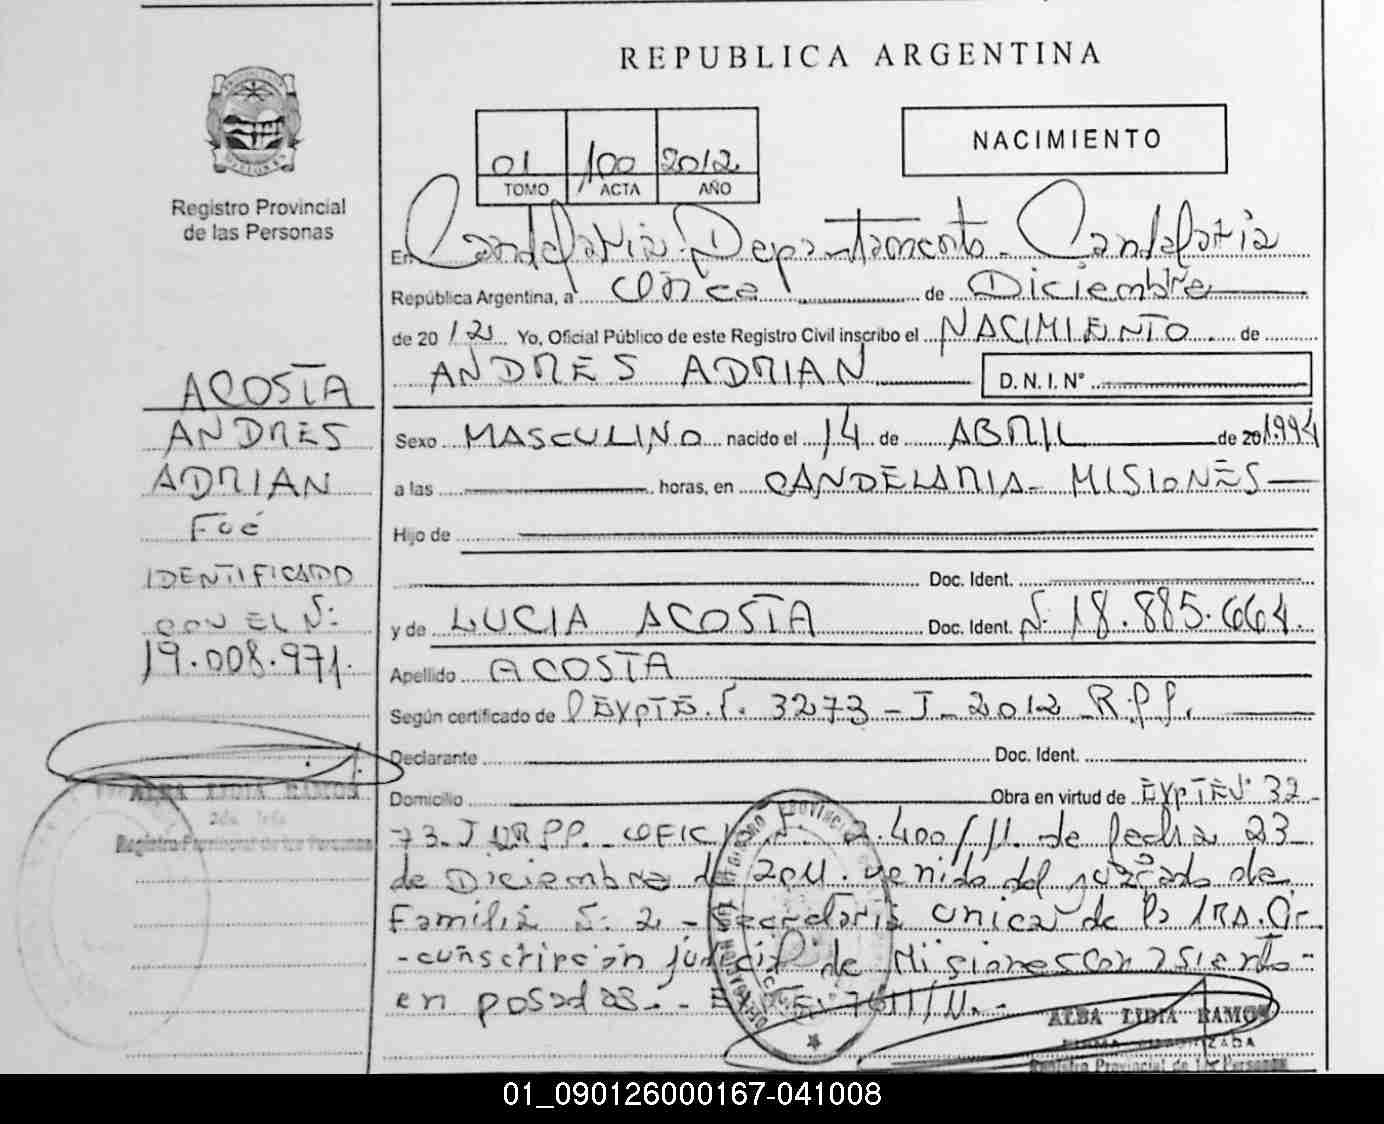 REPUBLICA ARGENTINA
NACIMIENTO
01 100 2012
TOMO ACTA AÑO
Registro Provincial
de las Personas
En Candelaria Departamento Candelaria
República Argentina, a once de Diciembre
de 2012 Yo, Oficial Público de este Registro Civil inscribo el NACIMIENTO de
ANDRES ADRIAN D. N. I. Nº
Sexo MASCULINO nacido el 14 de ABRIL de 20 1.994
a las horas, en CANDELARIA - MISIONES
Hijo de
Doc. Ident.
y de LUCIA ACOSTA Doc. Ident. Nº 18.885.664.
Apellido ACOSTA
Según certificado de EXPTE. 3273 - J - 2012 R.P.P.
Declarante Doc. Ident.
Domicilio Obra en virtud de EXPTE Nº 32
73. J R.P.P. 2.400/11. de fecha 23
de Diciembre de 2011. venido del juzgado de
Familia Nº 2 - Secretaria unica de la 1RA. Cir
-cunscripción judicial de Misiones con asiento-
en posadas.-
ACOSTA
ANDRES
ADRIAN
Fue
IDENTIFICADO
CON EL Nº
19.008.971.
ALBA LIDIA RAMOS
Registro Provincial de las Personas
ALBA LIDIA RAMOS
Registro Provincial de las Personas
01_090126000167-041008